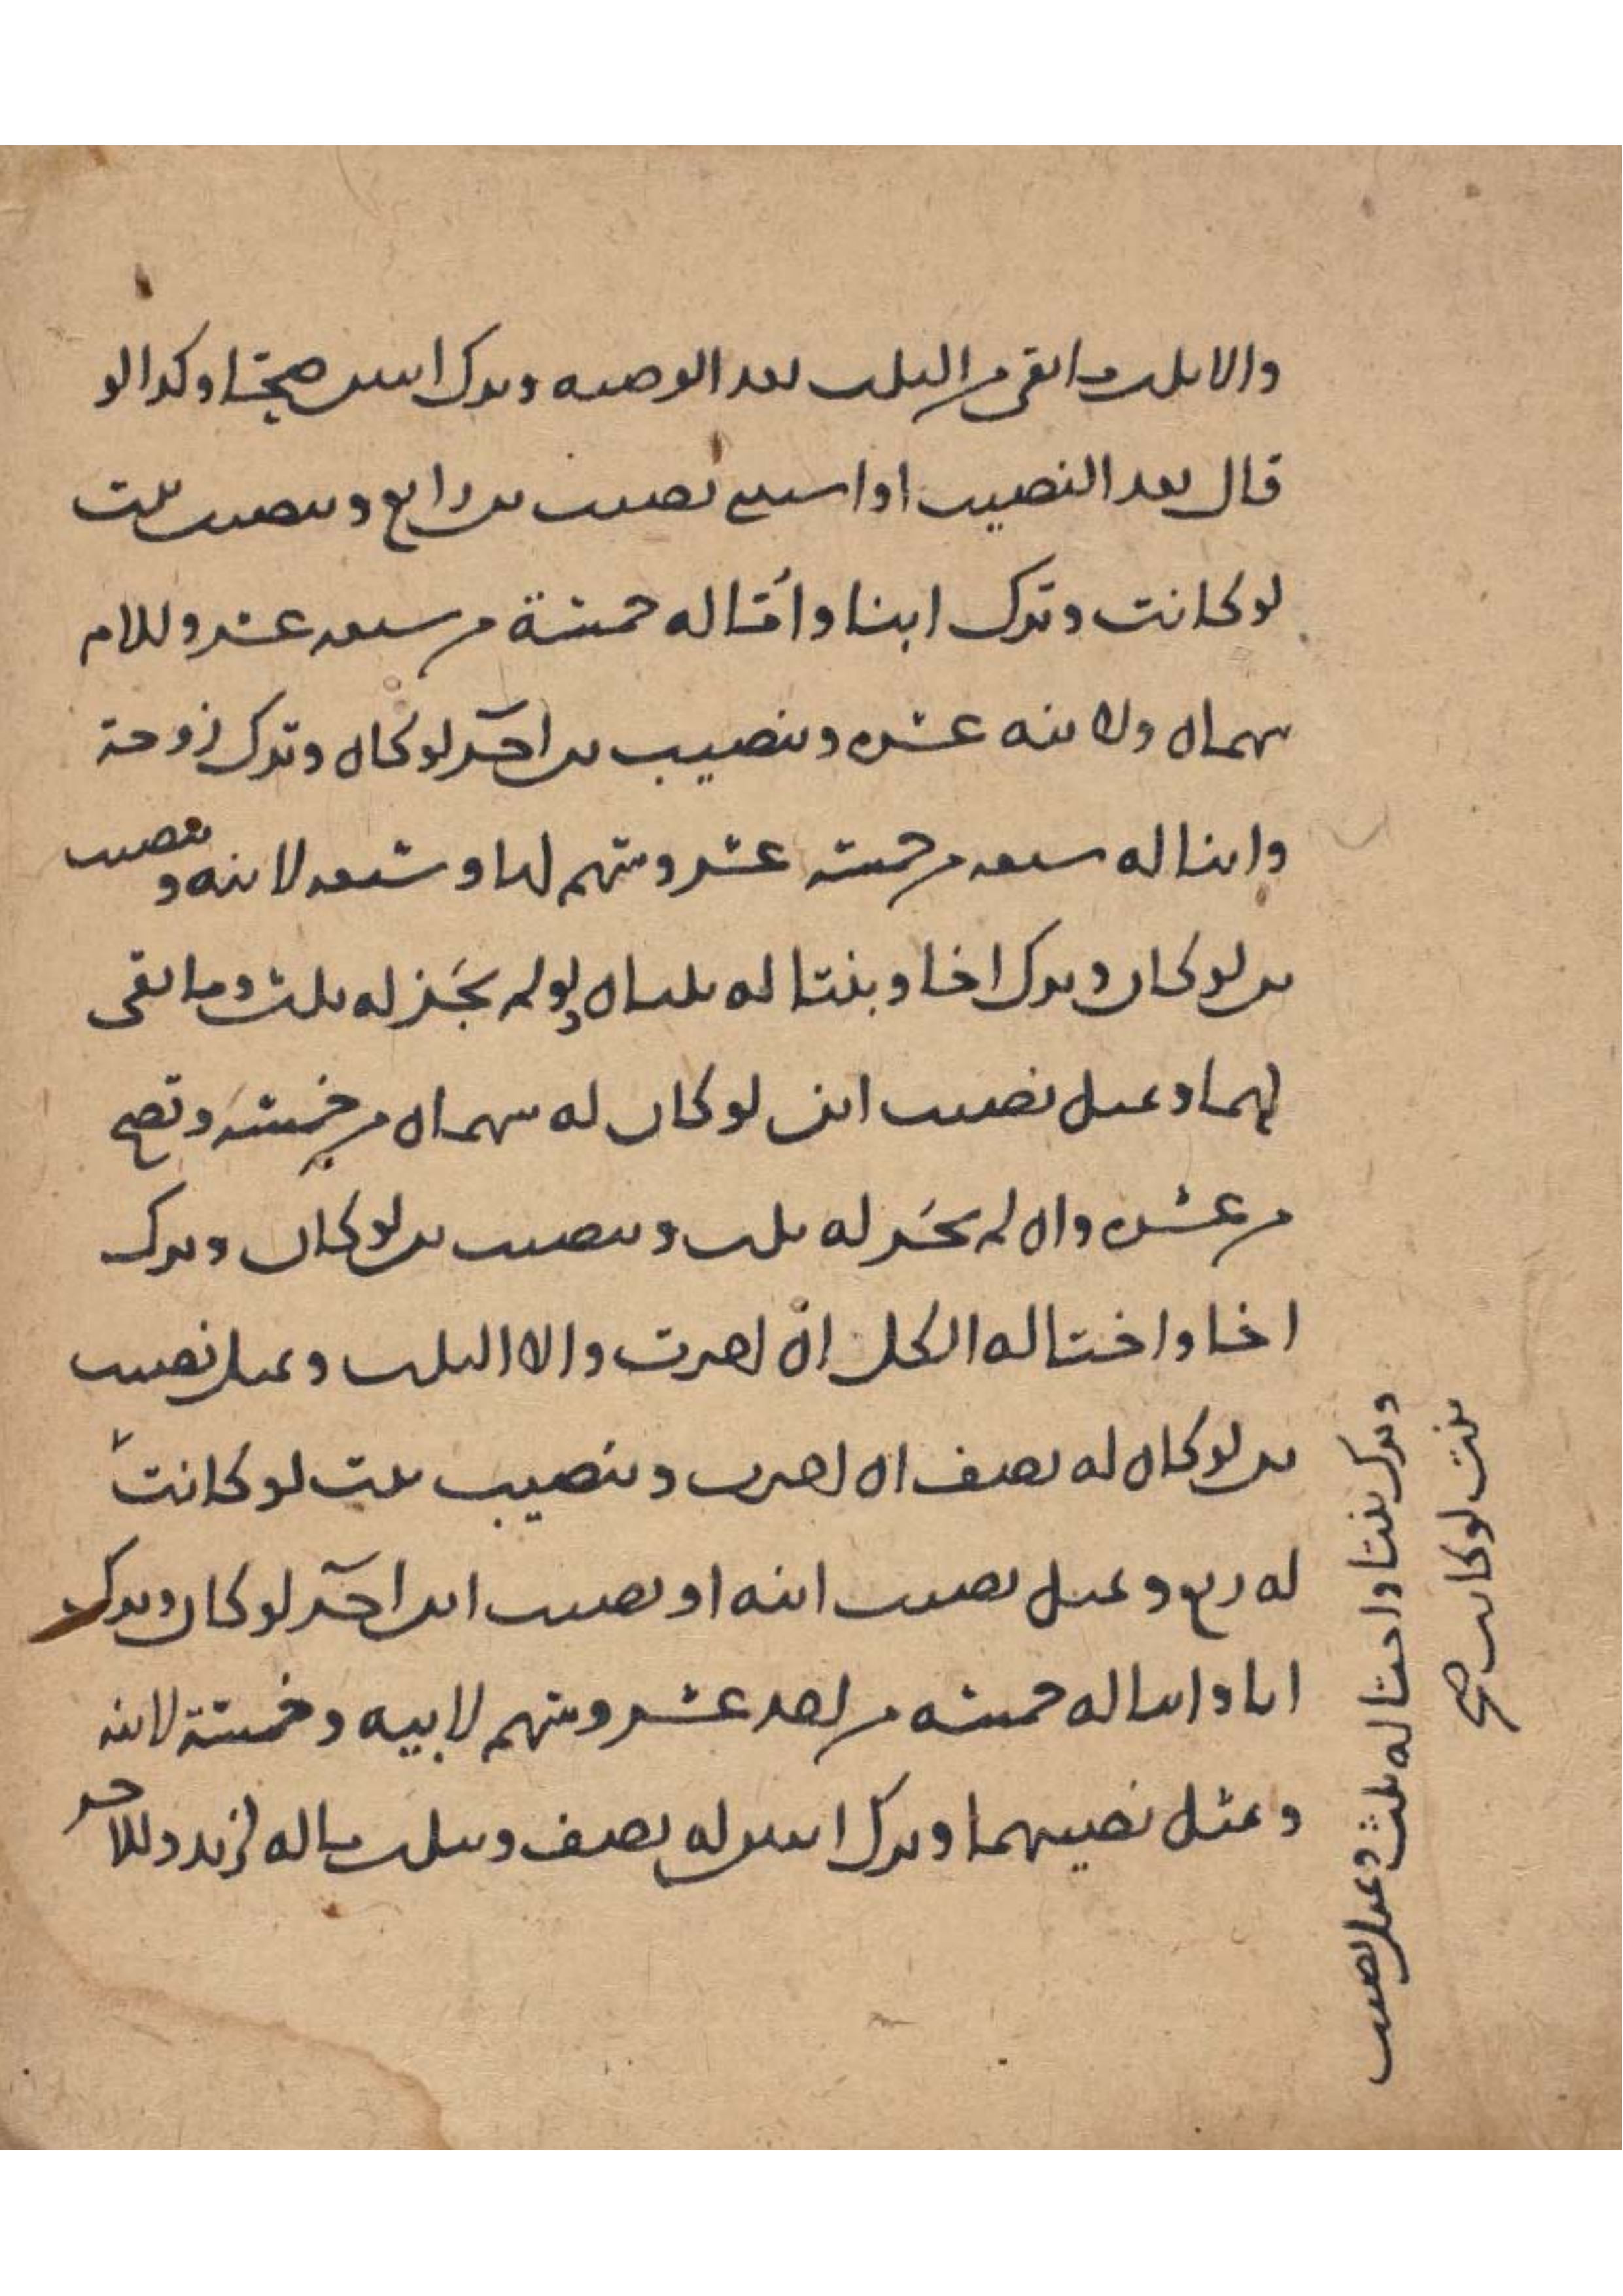 والا ثلث ما بقي من الثلث بعد الوصيه وترك ابنين صحتا وكذا لو
قال بعد النصيب او استثنى نصيب ابن رابع وبنصيب بنت
لو كانت وترك ابنا وأمّا له خمسة من سبعه عشر وللام
سهمان ولابنه عشره وبنصيب ابن آخر لو كان وترك زوجة
وابنا له سبعه من خمسه عشر وسهم لها وسبعه لابنه وبنصيب
ابن لو كان وترك اخا وبنتا له ثلثان ولو لم يجز له ثلث وما بقي
لهما وبمثل نصيب ابن لو كان له سهمان من خمسة وتصح
من عشره وان لم يجز له ثلث وبنصيب ابن لو كان وترك
اخا واختا له الكل ان اجيزت والا الثلث وبمثل نصيب
ابن لو كان له نصف ان اجيزت وبنصيب بنت لو كانت
له ربع وبمثل نصيب ابنه او نصيب ابن آخر لو كان وترك
ابا وابنا له خمسه من احد عشر وسهم لابيه وخمسة لابنه
وبمثل نصيبهما وترك ابنين له نصف وبثلث ماله لزيد وللآخر
وترك بنتا واختا له ثلث وبمثل نصيب
بنت لو كانت صح